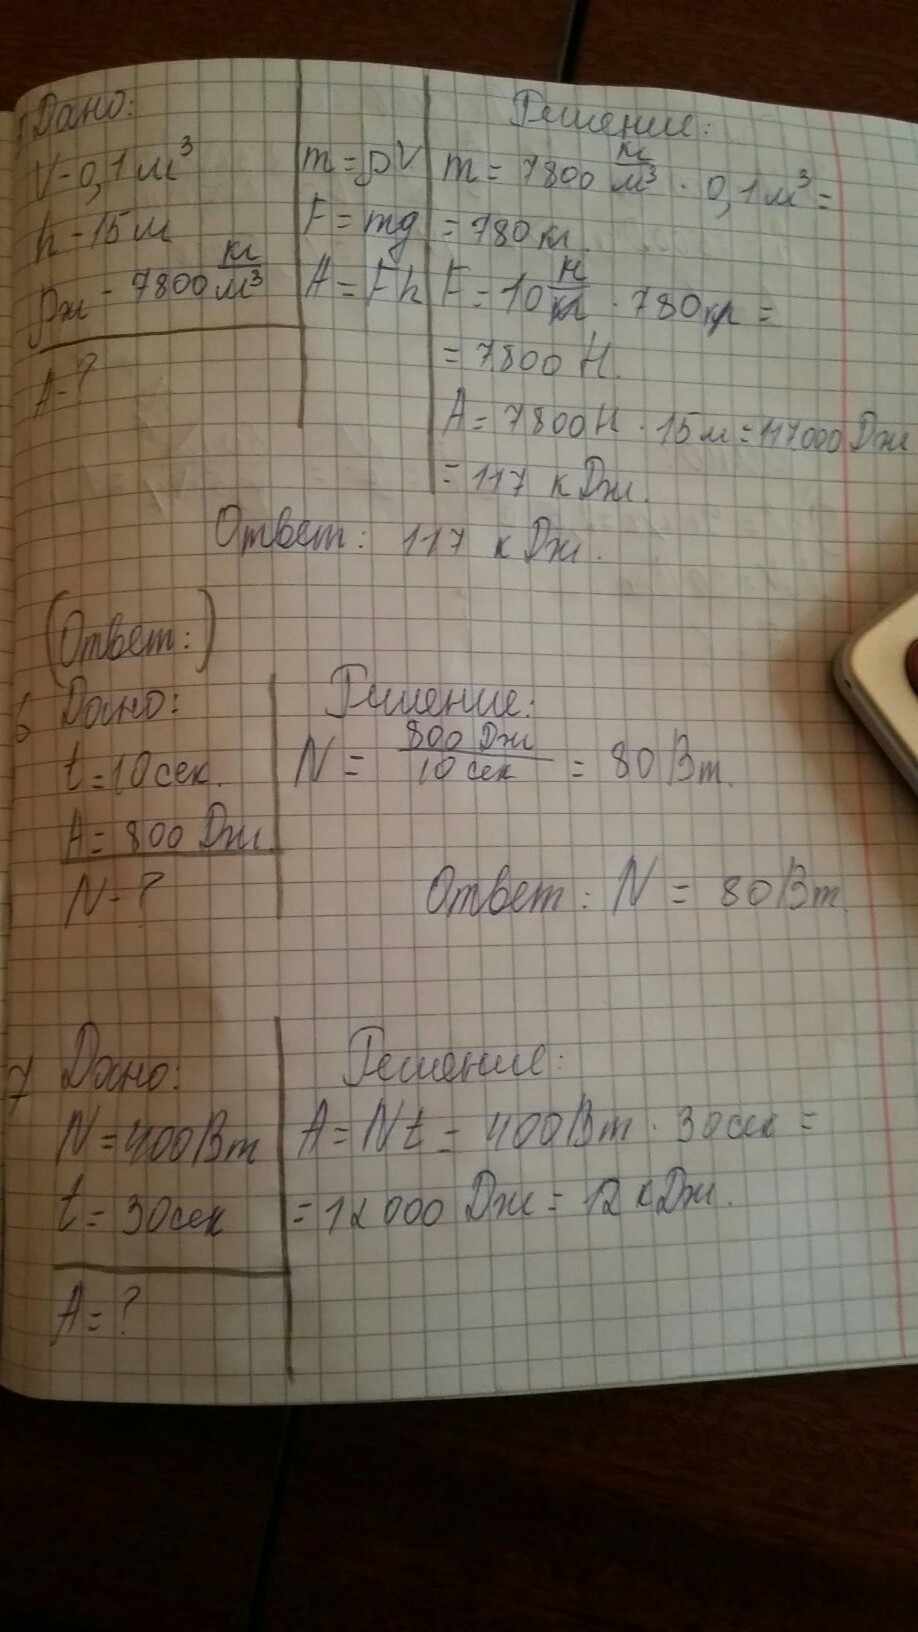 Дано:
V - 0,1 м³
h - 15 м
ρж - 7800 кг/м³
A - ?
m = ρV
F = mg
A = Fh
Решение:
m = 7800 кг/м³ · 0,1 м³ =
= 780 кг.
F = 10 Н/кг · 780 кг =
= 7800 Н.
A = 7800 Н · 15 м = 117000 Дж
= 117 кДж.
Ответ: 117 кДж.
(Ответ:)
6 Дано:
t = 10 сек.
A = 800 Дж
N - ?
Решение:
N = 800 Дж / 10 сек = 80 Вт.
Ответ: N = 80 Вт
7 Дано:
N = 400 Вт
t = 30 сек
A = ?
Решение:
A = Nt = 400 Вт · 30 сек =
= 12 000 Дж = 12 кДж.